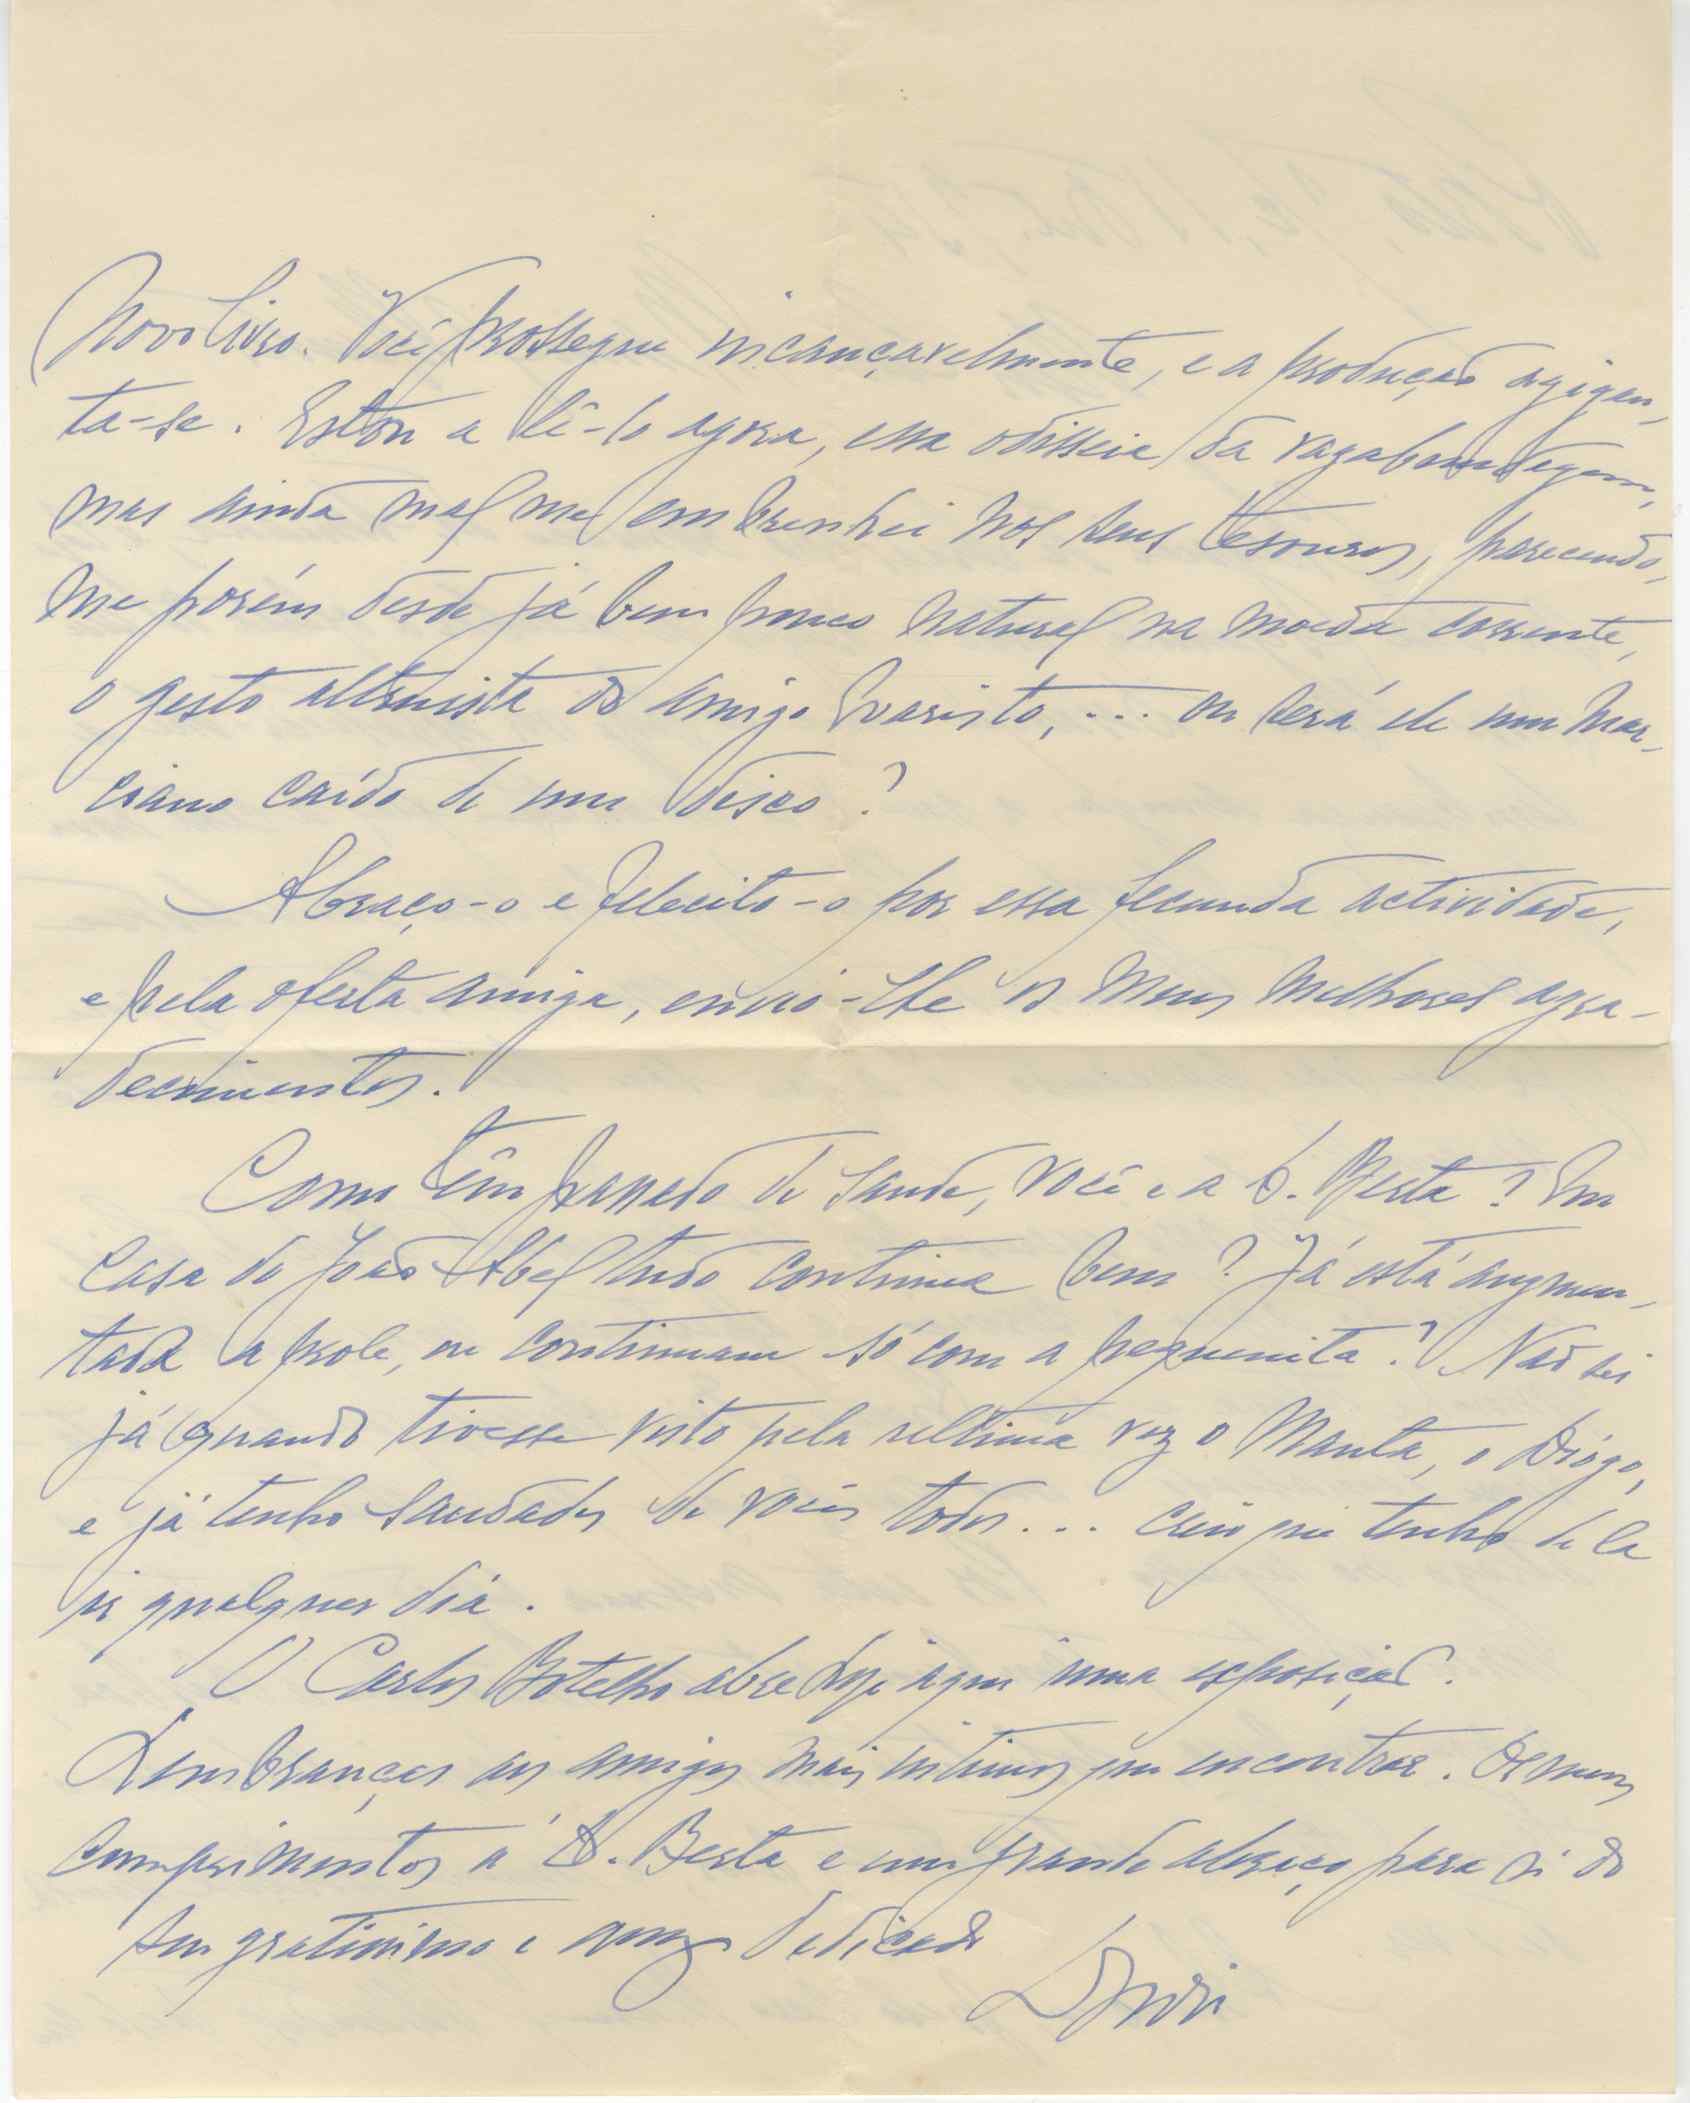 Novo livro. Você prossegue incançavelmente, e a produção agigan-
ta-se. Estou a lê-lo agora, essa odisseia da vagabundagem,
mas ainda mal me embrenhei nos seus tesouros, parecendo-
me porém desde já bem pouco natural na moeda corrente,
o gesto altruista do amigo Evaristo, ... ou será ele um mar-
ciano caído de um disco?
Abraço-o e felicito-o por essa fecunda actividade,
e pela oferta amiga, envio-lhe os meus melhores agra-
decimentos.
Como têm passado de saude, você e a D. Berta? Em
casa do João Abel tudo continua bem? Já está augmen-
tada a prole, ou continuam só com a pequenita? Não sei
já quando tivesse visto pela ultima vez o Manta, o Diogo,
e já tenho saudades de vocês todos... creio que tenho de la
ir qualquer dia.
O Carlos Botelho abre hoje aqui uma exposição.
Lembranças aos amigos mais intimos que encontrar. Os meus
cumprimentos à D. Berta e um grande abraço para si do
seu gratissimo e amigo dedicado